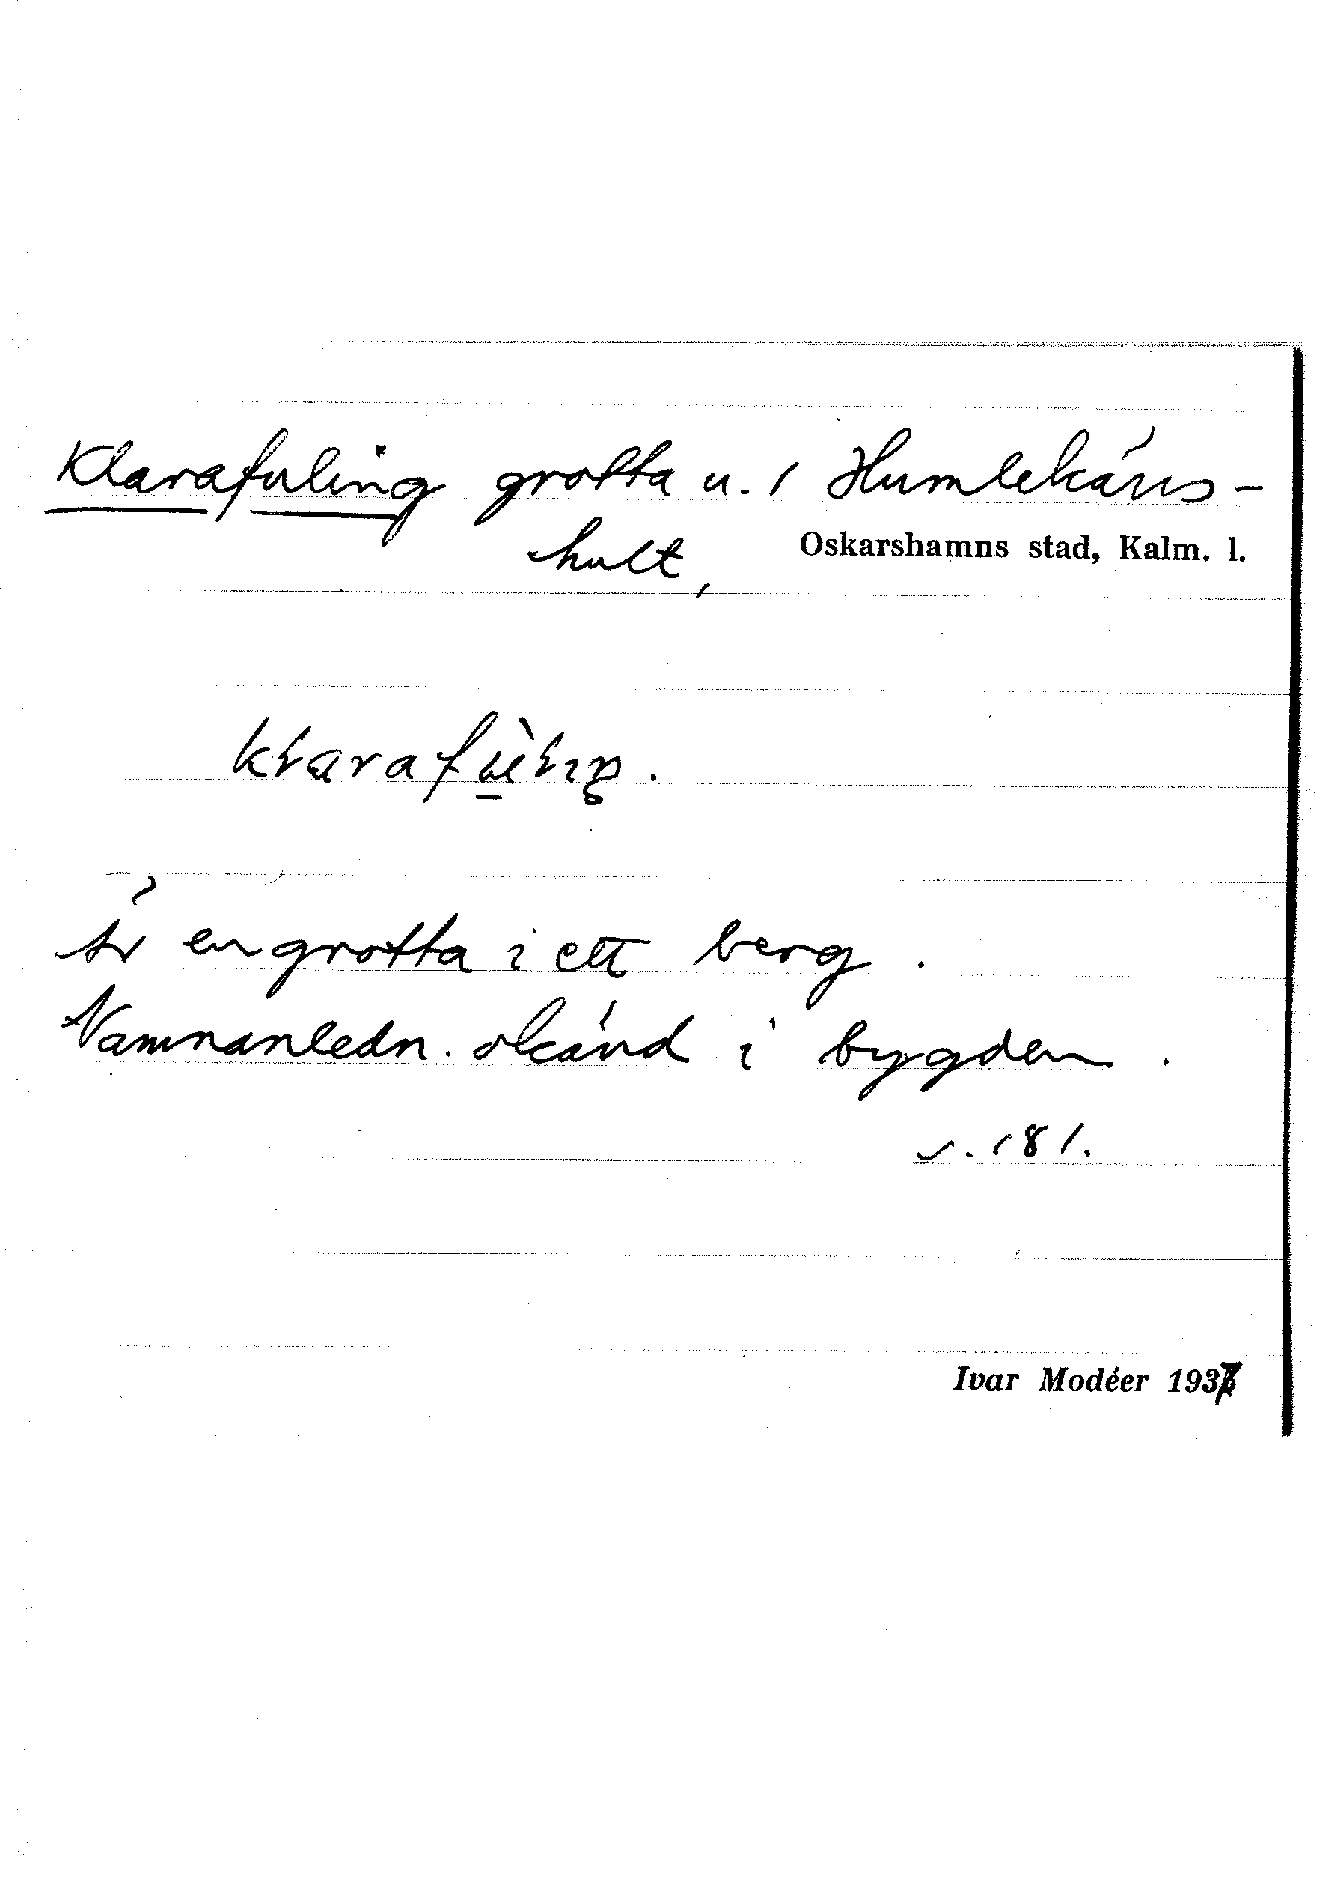 Klarafuling grotta u. 1 Humlekärrs-
hult, Oskarshamns stad, Kalm. l.
Är en grotta i ett berg.
Namnanledn. okänd i bygden.
s. 181.
Ivar Modéer 1937